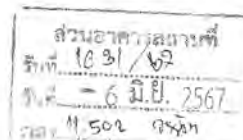 ส่วนอาคารสถานที่
รับที่ 1631/62
วันที่ - 6 มิ.ย. 2567
เวลา 11.502